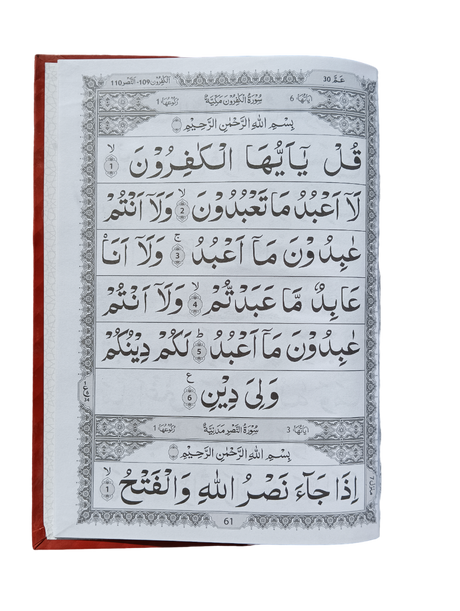 عَمَّ 30 الكٰفِرُون 109، النَّصر 110
اٰيَاتُهَا 6 سُوْرَةُ الْكٰفِرُوْنَ مَكِّيَّةٌ رُكُوْعُهَا 1
بِسْمِ اللهِ الرَّحْمٰنِ الرَّحِيْمِ
قُلْ يٰۤاَيُّهَا الْكٰفِرُوْنَ ۙ 1
لَاۤ اَعْبُدُ مَا تَعْبُدُوْنَ ۙ 2 وَلَاۤ اَنْتُمْ
عٰبِدُوْنَ مَاۤ اَعْبُدُ ۚ 3 وَلَاۤ اَنَا۠
عَابِدٌ مَّا عَبَدْتُّمْ ۙ 4 وَلَاۤ اَنْتُمْ
عٰبِدُوْنَ مَاۤ اَعْبُدُ ؕ 5 لَكُمْ دِيْنُكُمْ
وَلِيَ دِيْنِ ع 6
اٰيَاتُهَا 3 سُوْرَةُ النَّصْرِ مَدَنِيَّةٌ رُكُوْعُهَا 1
بِسْمِ اللهِ الرَّحْمٰنِ الرَّحِيْمِ
اِذَا جَآءَ نَصْرُ اللهِ وَالْفَتْحُ ۙ 1
61